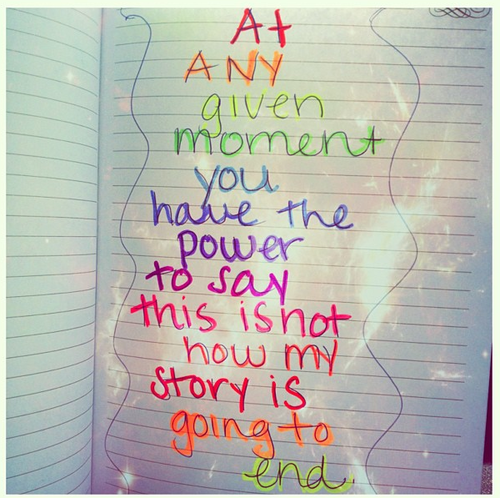 At
ANY
given
moment
you
have the
power
to say
this is not
how my
story is
going to
end.